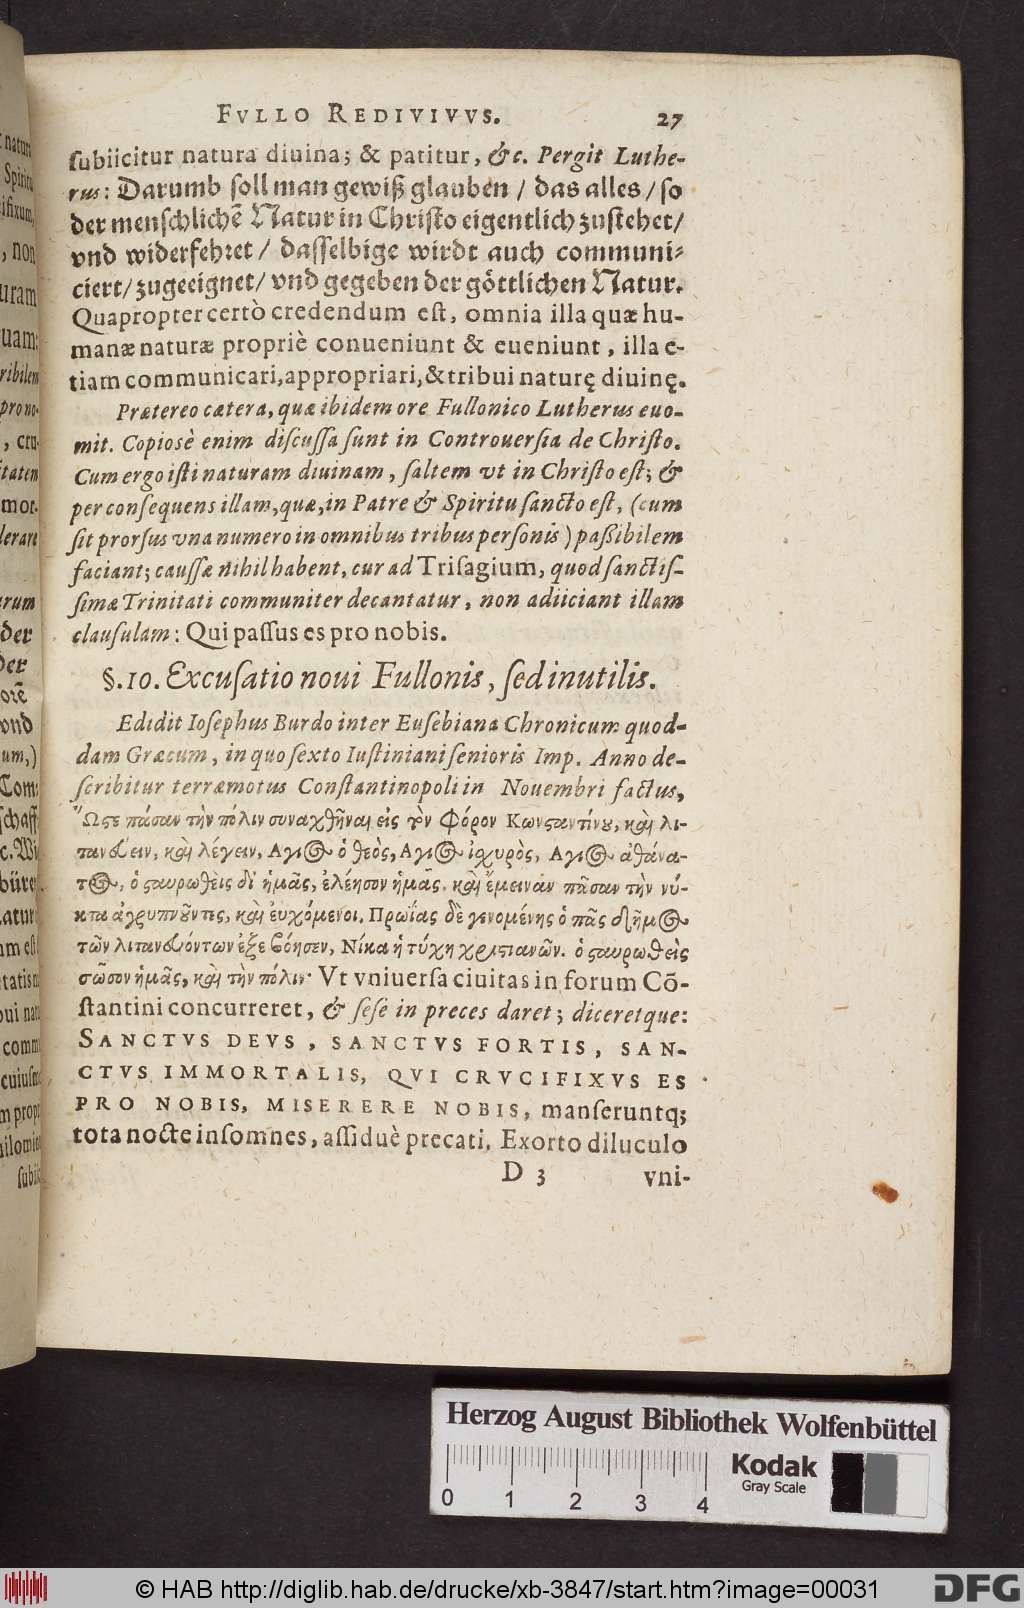 FVLLO REDIVIVVS. 27
subiicitur natura diuina; & patitur, &c. Pergit Luthe-
rus: Darumb soll man gewiß glauben / das alles / so
der menschlichẽ Natur in Christo eigentlich zustehet /
vnd widerfehret / dasselbige wirdt auch communi-
ciert / zugeeignet / vnd gegeben der göttlichen Natur.
Quapropter certò credendum est, omnia illa quæ hu-
manæ naturæ propriè conueniunt & eueniunt, illa e-
tiam communicari, appropriari, & tribui naturę diuinę.
Prætereo cætera, quæ ibidem ore Fullonico Lutherus euo-
mit. Copiosè enim discussa sunt in Controuersia de Christo.
Cum ergo isti naturam diuinam, saltem vt in Christo est; &
per consequens illam, quæ, in Patre & Spiritu sancto est, (cum
sit prorsus vna numero in omnibus tribus personis) passibilem
faciant; caussæ nihil habent, cur ad Trisagium, quod sanctis-
simæ Trinitati communiter decantatur, non adiiciant illam
clausulam: Qui passus es pro nobis.
§. 10. Excusatio noui Fullonis, sed inutilis.
Edidit Iosephus Burdo inter Eusebiana Chronicum quod-
dam Græcum, in quo sexto Iustiniani senioris Imp. Anno de-
scribitur terræmotus Constantinopoli in Nouembri factus,
Ὥστε πάσαν τὴν πόλιν συναχθῆναι εἰς τὸν Φόρον Κωνσταντίνου, καὶ λι-
τανεύειν, καὶ λέγειν, Αγιος ὁ θεὸς, Αγιος ἰχυρὸς, Αγιος ἀθάνα-
τος, ὁ σταυρωθεὶς δι' ἡμᾶς, ἐλέησον ἡμᾶς. καὶ ἔμειναν πᾶσαν τὴν νύ-
κτα ἀγρυπνοῦντες, καὶ ἐυχόμενοι. Πρωΐας δὲ γενομένης ὁ πᾶς δῆμος
τῶν λιτανευόντων ἐξεβόησεν, Νίκα ἡ τύχη χριστιανῶν. ὁ σταυρωθεὶς
σῶσον ἡμᾶς, καὶ τὴν πόλιν· Vt vniuersa ciuitas in forum Cõ-
stantini concurreret, & sese in preces daret; diceretque:
SANCTVS DEVS, SANCTVS FORTIS, SAN-
CTVS IMMORTALIS, QVI CRVCIFIXVS ES
PRO NOBIS, MISERERE NOBIS, manseruntq;
tota nocte insomnes, assiduè precati. Exorto diluculo
D 3 vni-
Herzog August Bibliothek Wolfenbüttel
Kodak
Gray Scale
0 1 2 3 4
© HAB http://diglib.hab.de/drucke/xb-3847/start.htm?image=00031
DFG